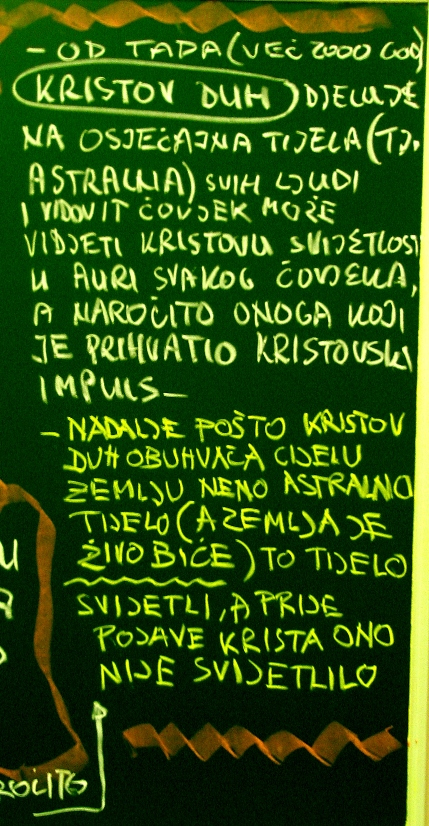 - OD TADA (VEĆ 2000 GOD)
KRISTOV DUH DJELUJE
NA OSJEĆAJNA TIJELA (TJ.
ASTRALNA) SVIH LJUDI
I VIDOVIT ČOVJEK MOŽE
VIDJETI KRISTOVU SVIJETLOST
U AURI SVAKOG ČOVJEKA,
A NAROČITO ONOGA KOJI
JE PRIHVATIO KRISTOVSKI
IMPULS -
- NADALJE POŠTO KRISTOV
DUH OBUHVAĆA CIJELU
ZEMLJU NENO ASTRALNO
TIJELO (A ZEMLJA JE
ŽIVO BIĆE) TO TIJELO
SVIJETLI, A PRIJE
POJAVE KRISTA ONO
NIJE SVIJETLILO